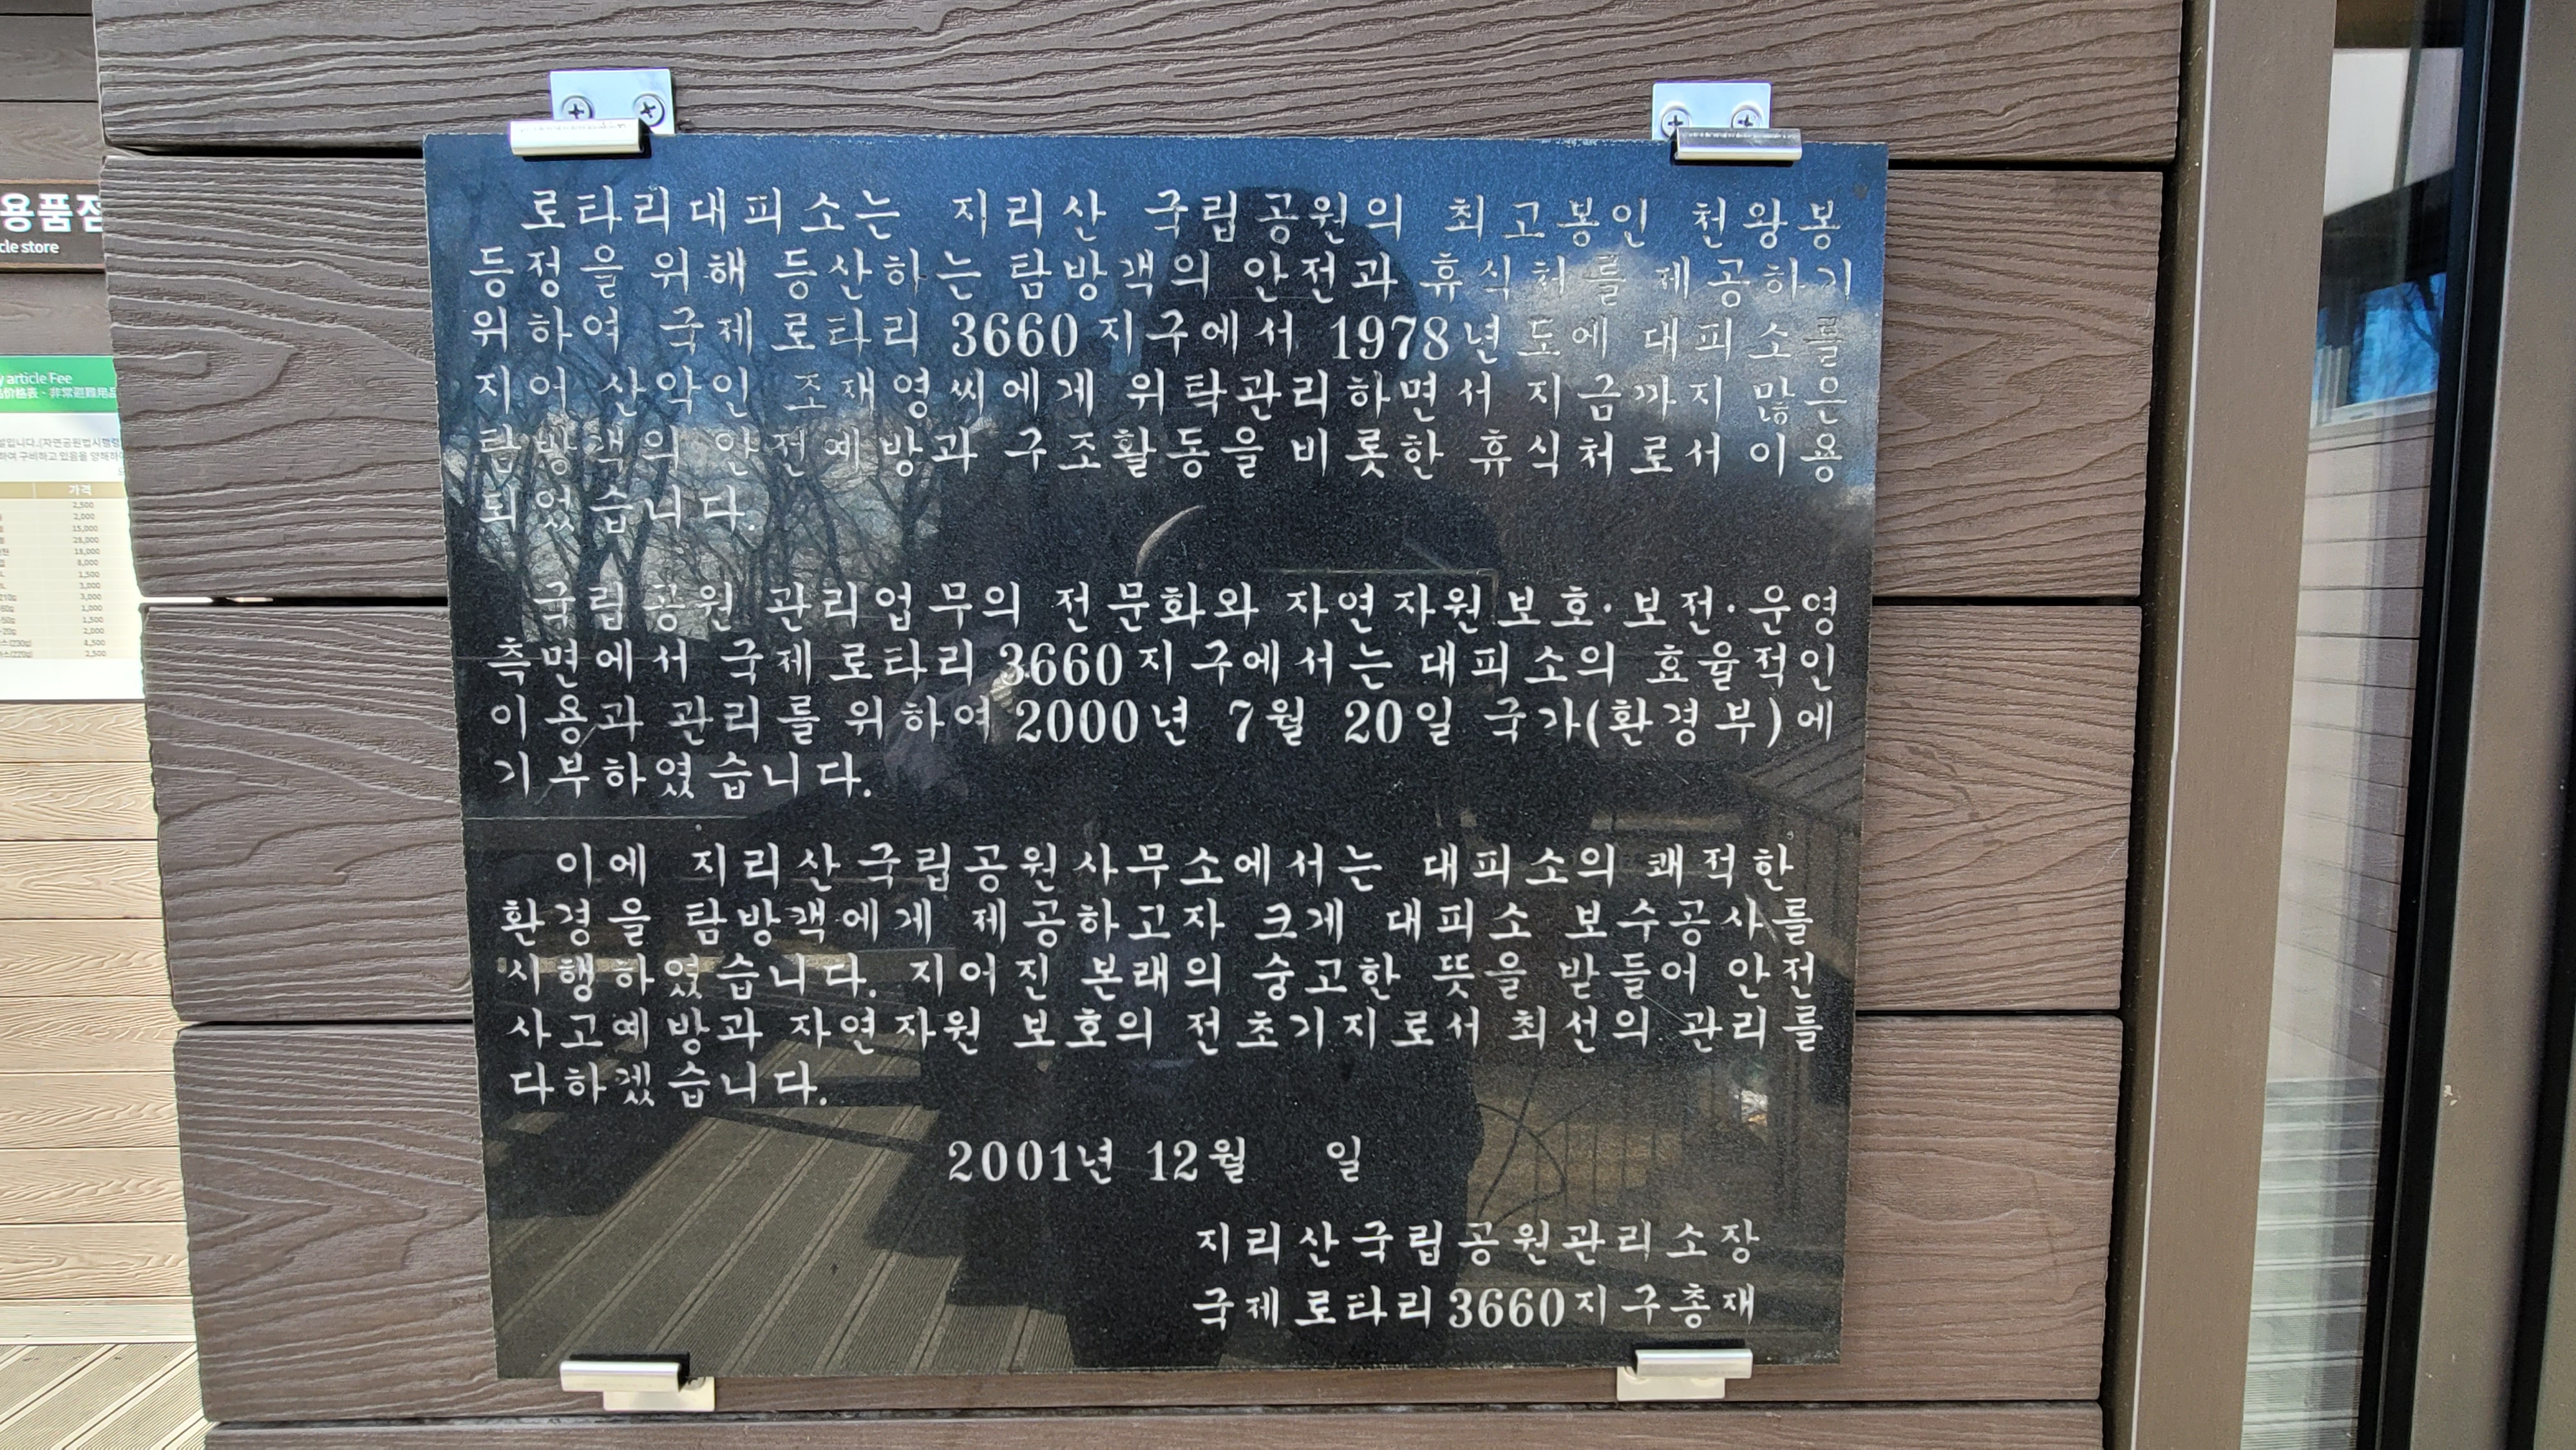 로타리대피소는 지리산 국립공원의 최고봉인 천왕봉
등정을 위해 등산하는 탐방객의 안전과 휴식처를 제공하기
위하여 국제로타리 3660지구에서 1978년도에 대피소를
지어 산악인 조재영씨에게 위탁관리하면서 지금까지 많은
탐방객의 안전예방과 구조활동을 비롯한 휴식처로서 이용
되었습니다.
국립공원 관리업무의 전문화와 자연자원보호·보전·운영
측면에서 국제로타리 3660지구에서는 대피소의 효율적인
이용과 관리를 위하여 2000년 7월 20일 국가(환경부)에
기부하였습니다.
이에 지리산국립공원사무소에서는 대피소의 쾌적한
환경을 탐방객에게 제공하고자 크게 대피소 보수공사를
시행하였습니다. 지어진 본래의 숭고한 뜻을 받들어 안전
사고예방과 자연자원 보호의 전초기지로서 최선의 관리를
다하겠습니다.
2001년 12월 일
지리산국립공원관리소장
국제로타리3660지구총재
용품점
cle store
article Fee
가격
2,500
2,000
15,000
28,000
18,000
8,000
1,500
3,000
3,000
1,000
1,500
2,000
4,500
2,500